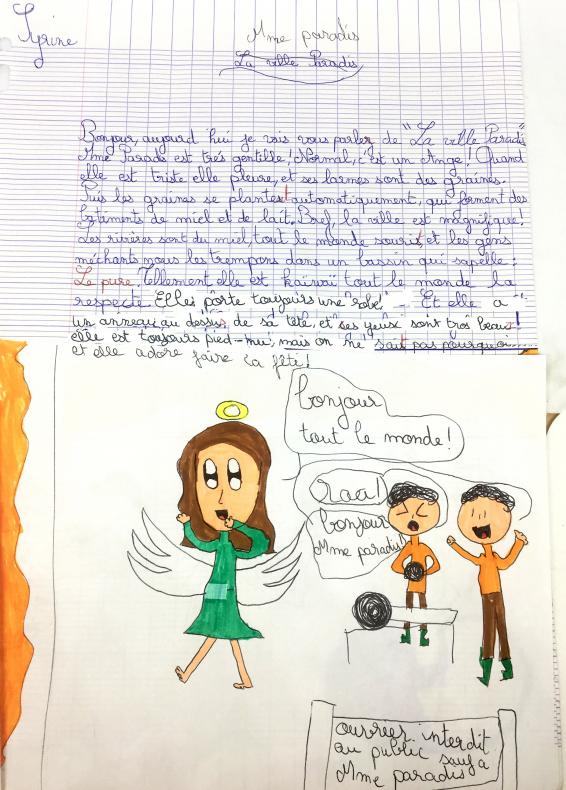 Syrine
Mme paradis
La ville Paradis
Bonjour, aujourd'hui je vais vous parler de "La ville Paradis"
Mme Paradis est très gentille! Normal, c'est un Ange! Quand
elle est triste elle pleure, et ses larmes sont des graines.
Puis les graines se plantent automatiquement, qui forment des
batiments de miel et de lait. Bref, la ville est magnifique!
Les rivières sont du miel, tout le monde sourit, et les gens
méchants nous les trempons dans un bassin qui s'apelle:
Le pure. Tellement elle est kaïwaï tout le monde la
respecte. Elles porte toujours une robe! Et elle a
un anneau au dessus de sa tête, et ses yeux sont très beau!
elle est toujours pied-nu, mais on ne sait pas pourquoi.....
et elle adore faire la fête!
bonjour
tout le monde!
raa!
bonjour
Mme paradis!
ouvrier interdit
au public sauf a
Mme paradis